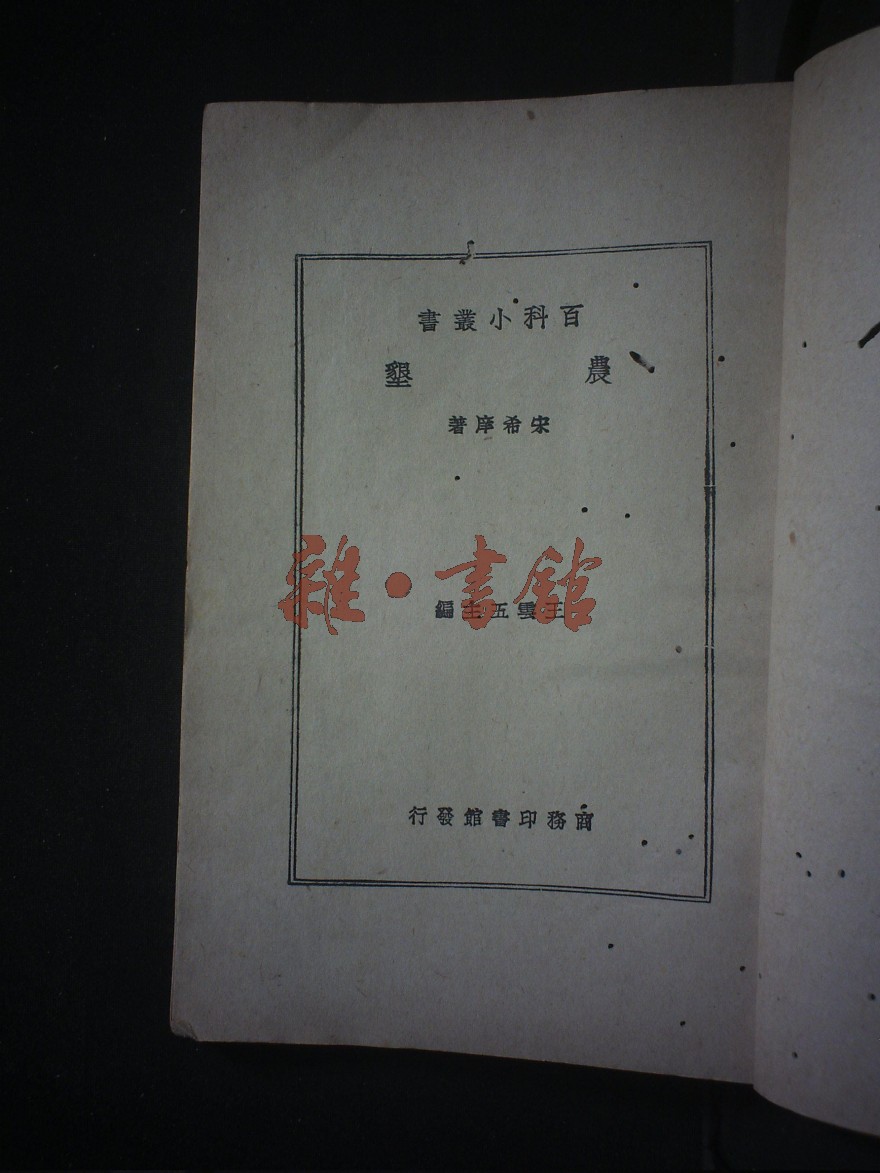 百科小叢書
農墾
宋希庠著
雜·書館
王雲五主編
商務印書館發行